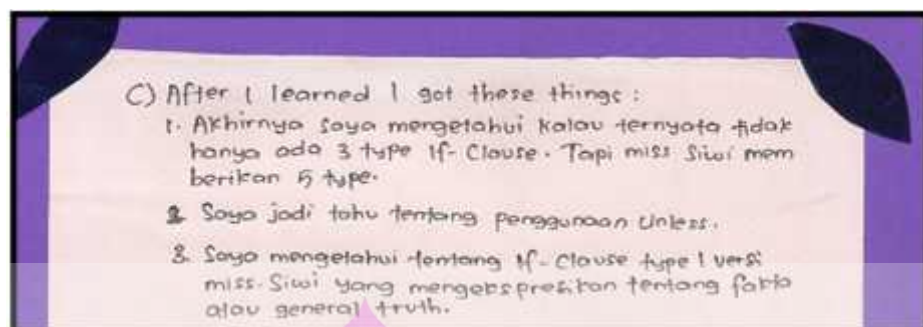 C) After I learned I got these things :
1. Akhirnya saya mengetahui kalau ternyata tidak
hanya ada 3 type If-Clause. Tapi miss Siwi mem
berikan 5 type.
2 Saya jadi tahu tentang penggunaan Unless.
3. Saya mengetahui tentang If-Clause type 1 versi
miss. Siwi yang mengekspresikan tentang fakta
atau general truth.